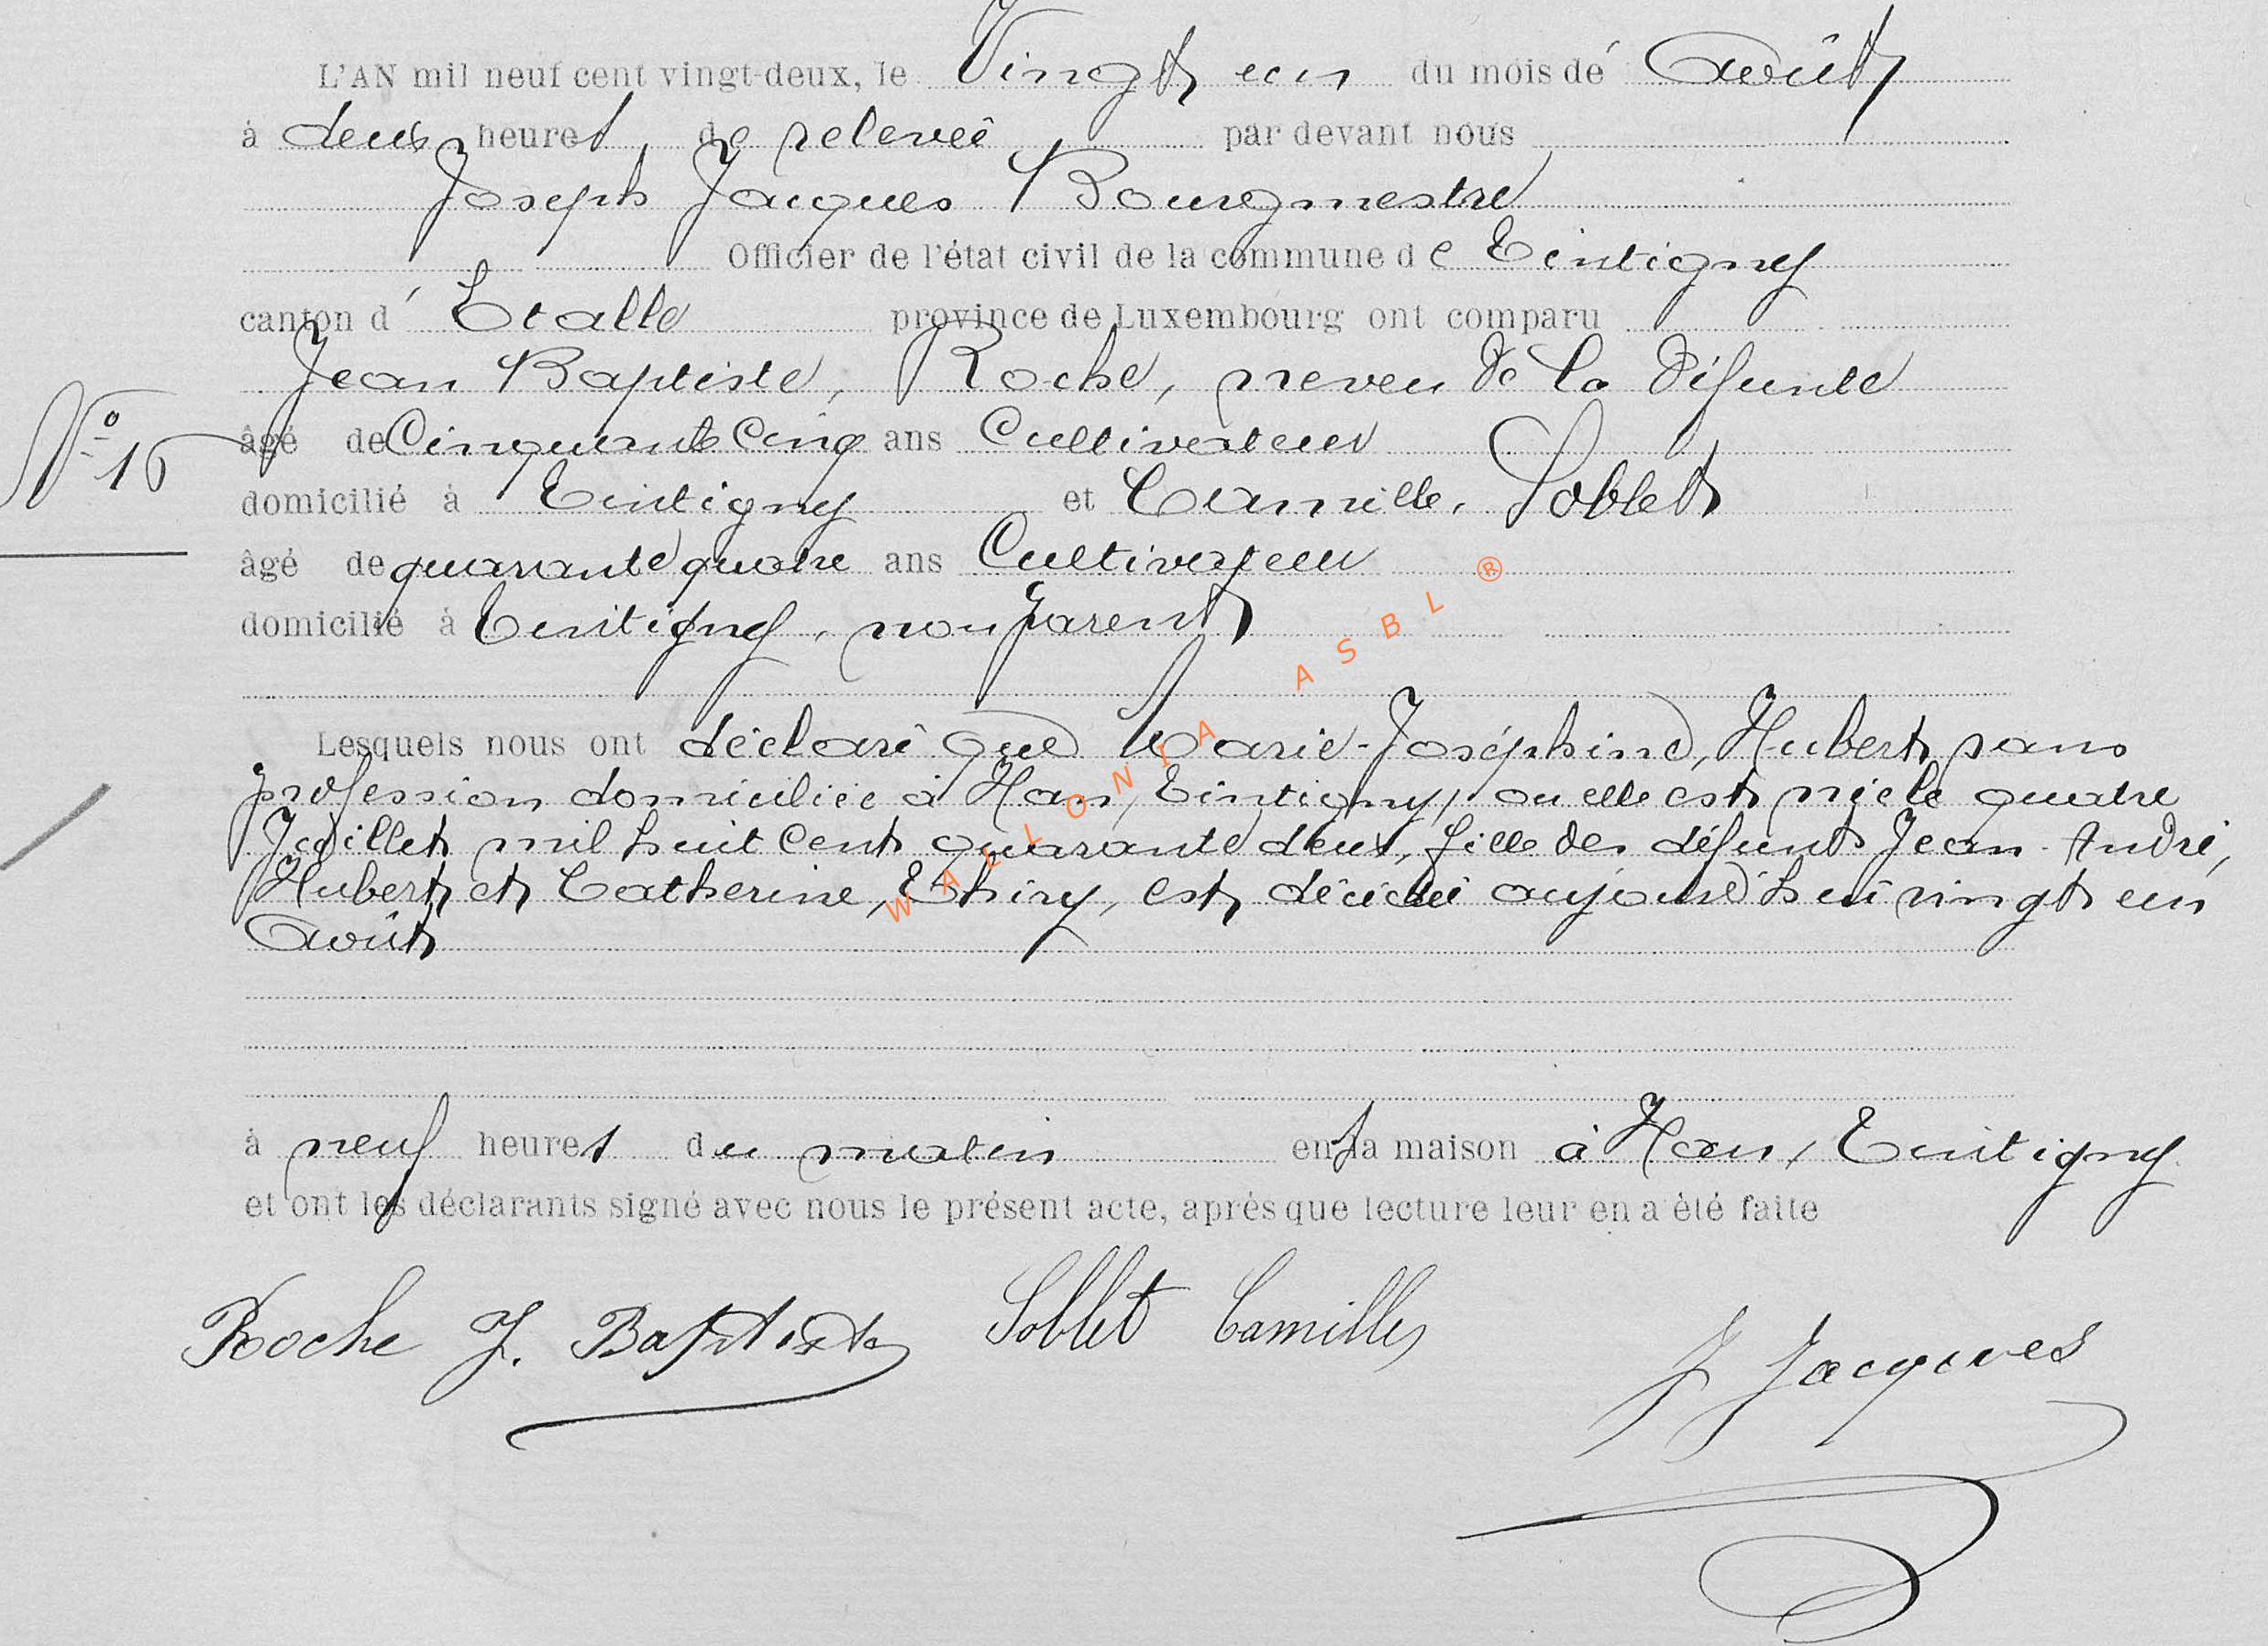 L'AN mil neuf cent vingt-deux, le Vingt un du mois de Août
à deux heures de relevée par devant nous
Joseph Jacques Bourgmestre
Officier de l'état civil de la commune de Tintigny
canton d'Etalle province de Luxembourg ont comparu
Jean Baptiste, Roche, neveu de la défunte
N° 16
âgé de Cinquante Cinq ans Cultivateur
domicilié à Tintigny et Camille, Soblet
âgé de quarante quatre ans Cultivateur
domicilié à Tintigny, non parent
Lesquels nous ont déclaré que Marie-Joséphine, Hubert, sans
profession domiciliée à Han, Tintigny, ou elle est née le quatre
Juillet mil huit Cent quarante deux, fille des défunts Jean-André,
Hubert et Catherine, Thiry, est décédée aujourd'hui vingt un
Août
à neuf heures du matin en sa maison à Han, Tintigny
et ont les déclarants signé avec nous le présent acte, après que lecture leur en a été faite
Roche J. Baptiste Soblet Camille
J Jacques
WALLONIA ASBL ®